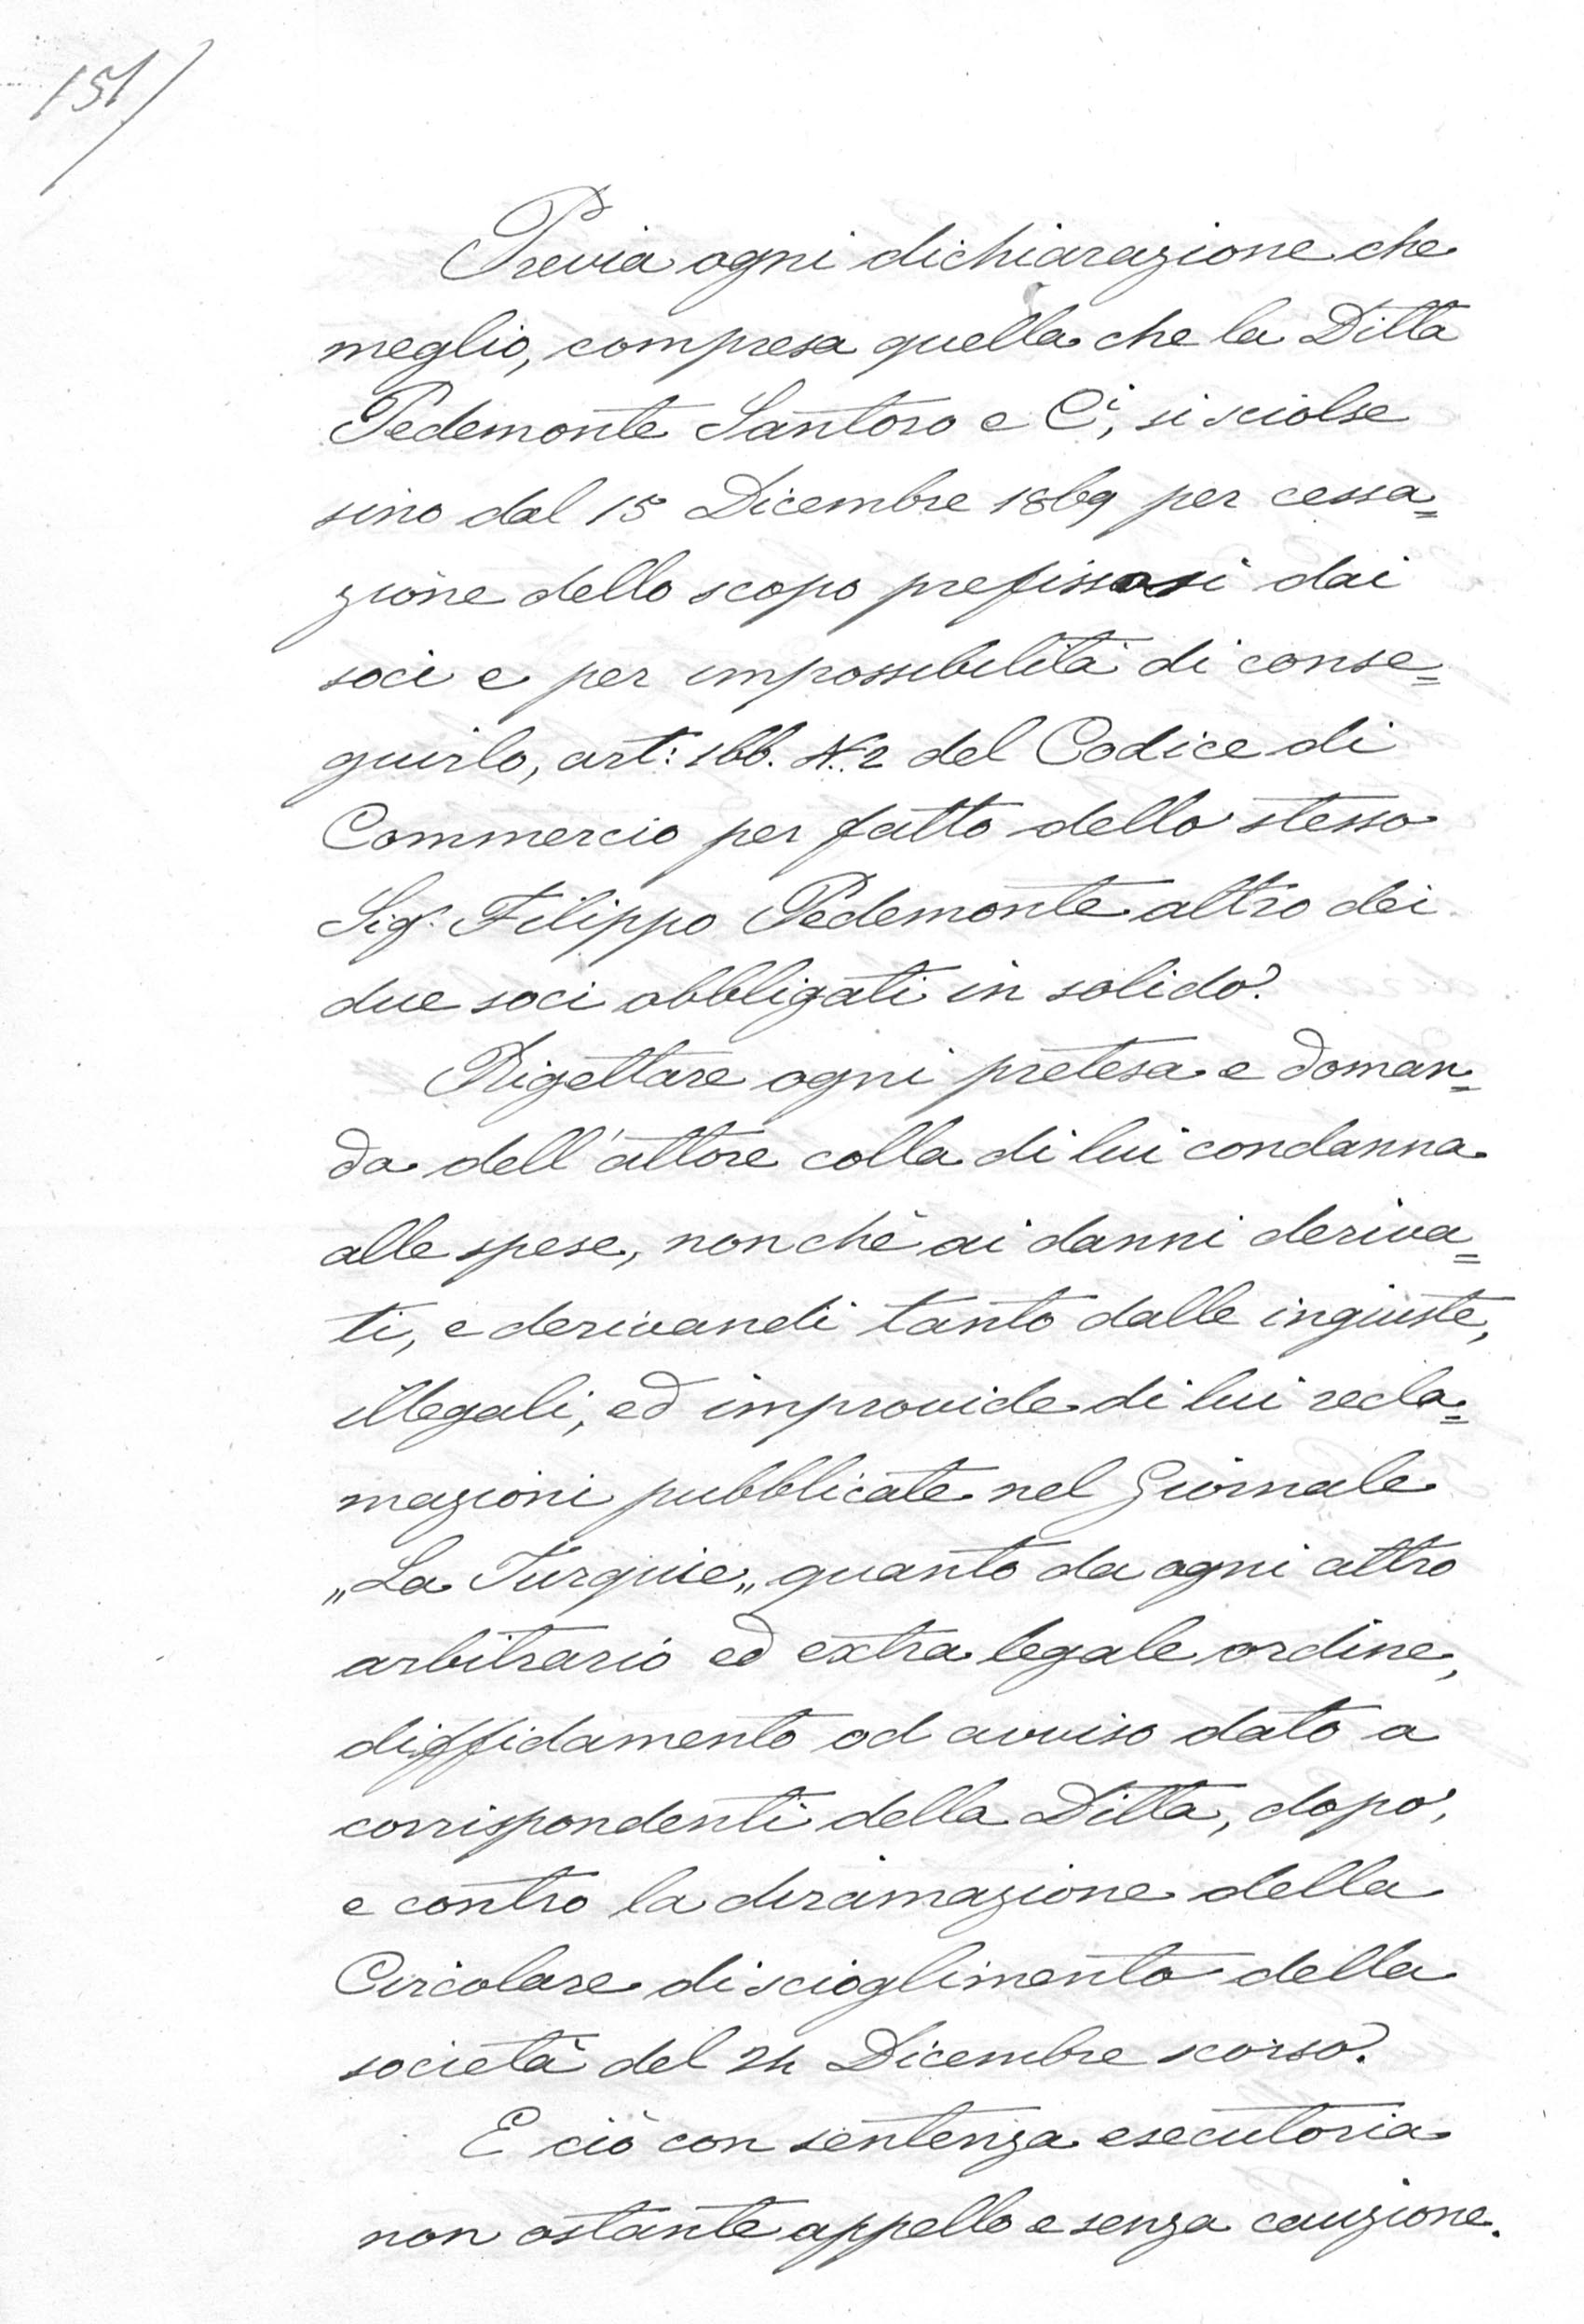 151/
Previa ogni dichiarazione che
meglio, compresa quella che la Ditta
Pedemonte Santoro e Ci, si sciolse
sino dal 15 Dicembre 1869 per cessa=
zione dello scopo prefissosi dai
soci e per impossibilità di conse=
guirlo, art: 166. N. 2 del Codice di
Commercio per fatto dello stesso
Sigr. Filippo Pedemonte altro dei
due soci obbligati in solido.
Rigettare ogni pretesa e doman=
da dell'attore colla di lui condanna
alle spese, nonchè ai danni deriva=
ti, e derivandi tanto dalle ingiuste,
illegali, ed improvide di lui recla=
mazioni pubblicate nel Giornale
„La Turquie„ quanto da ogni altro
arbitrario ed extra legale ordine,
diffidamento od avviso dato a
corrispondenti della Ditta, dopo,
e contro la diramazione della
Circolare di scioglimento della
società del 24 Dicembre scorso.
E ciò con sentenza esecutoria
non ostante appello e senza cauzione.